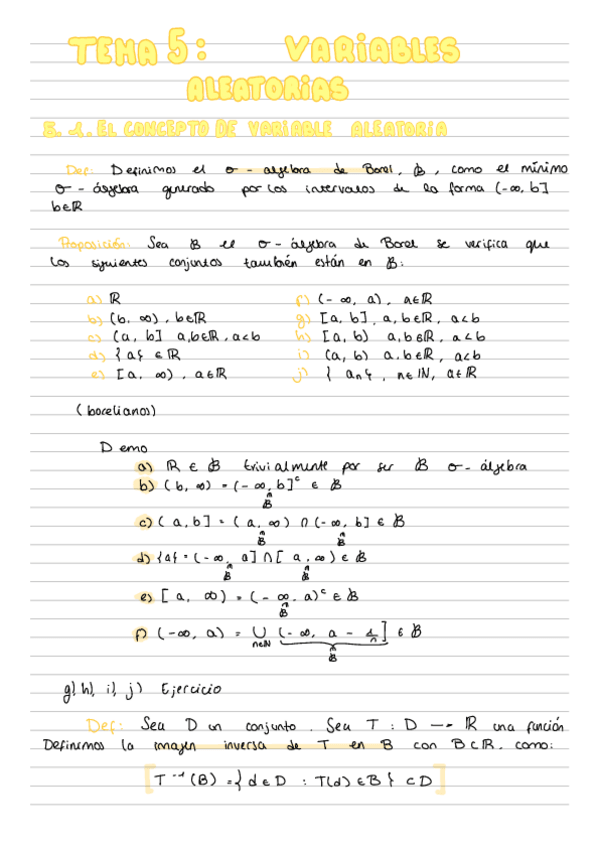 TEMA 5: VARIABLES
ALEATORIAS
5.1. EL CONCEPTO DE VARIABLE ALEATORIA
Def: Definimos el σ-algebra de Borel, 𝓑, como el mínimo
σ-álgebra generado por los intervalos de la forma (-∞, b]
b∈ℝ
Proposición: Sea 𝓑 el σ-álgebra de Borel se verifica que
los siguientes conjuntos también están en 𝓑:
a) ℝ
b) (b, ∞), b∈ℝ
c) (a, b] a,b∈ℝ, a<b
d) {a} ∈ℝ
e) [a, ∞), a∈ℝ
f) (-∞, a), a∈ℝ
g) [a, b], a,b∈ℝ, a<b
h) [a, b) a,b∈ℝ, a<b
i) (a, b) a,b∈ℝ, a<b
j) { aₙ}, n∈ℕ, a∈ℝ
(borelianos)
Demo
a) ℝ ∈ 𝓑 trivialmente por ser 𝓑 σ-álgebra
b) (b, ∞) = (-∞, b]ᶜ ∈ 𝓑
𝓑
c) (a, b] = (a, ∞) ∩ (-∞, b] ∈ 𝓑
𝓑 𝓑
d) {a} = (-∞, a] ∩ [a, ∞) ∈ 𝓑
𝓑 𝓑
e) [a, ∞) = (-∞, a)ᶜ ∈ 𝓑
𝓑
f) (-∞, a) = ∪ (-∞, a - 1/n] ∈ 𝓑
n∈ℕ
𝓑
g), h), i), j) Ejercicio
Def: Sea D un conjunto. Sea T: D → ℝ una función
Definimos la imagen inversa de T en B con B⊂ℝ, como:
[T⁻¹(B) = {d∈D : T(d)∈B} ⊂D]